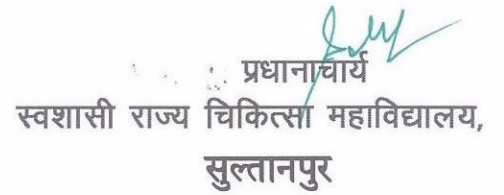 प्रधानाचार्य
स्वशासी राज्य चिकित्सा महाविद्यालय,
सुल्तानपुर